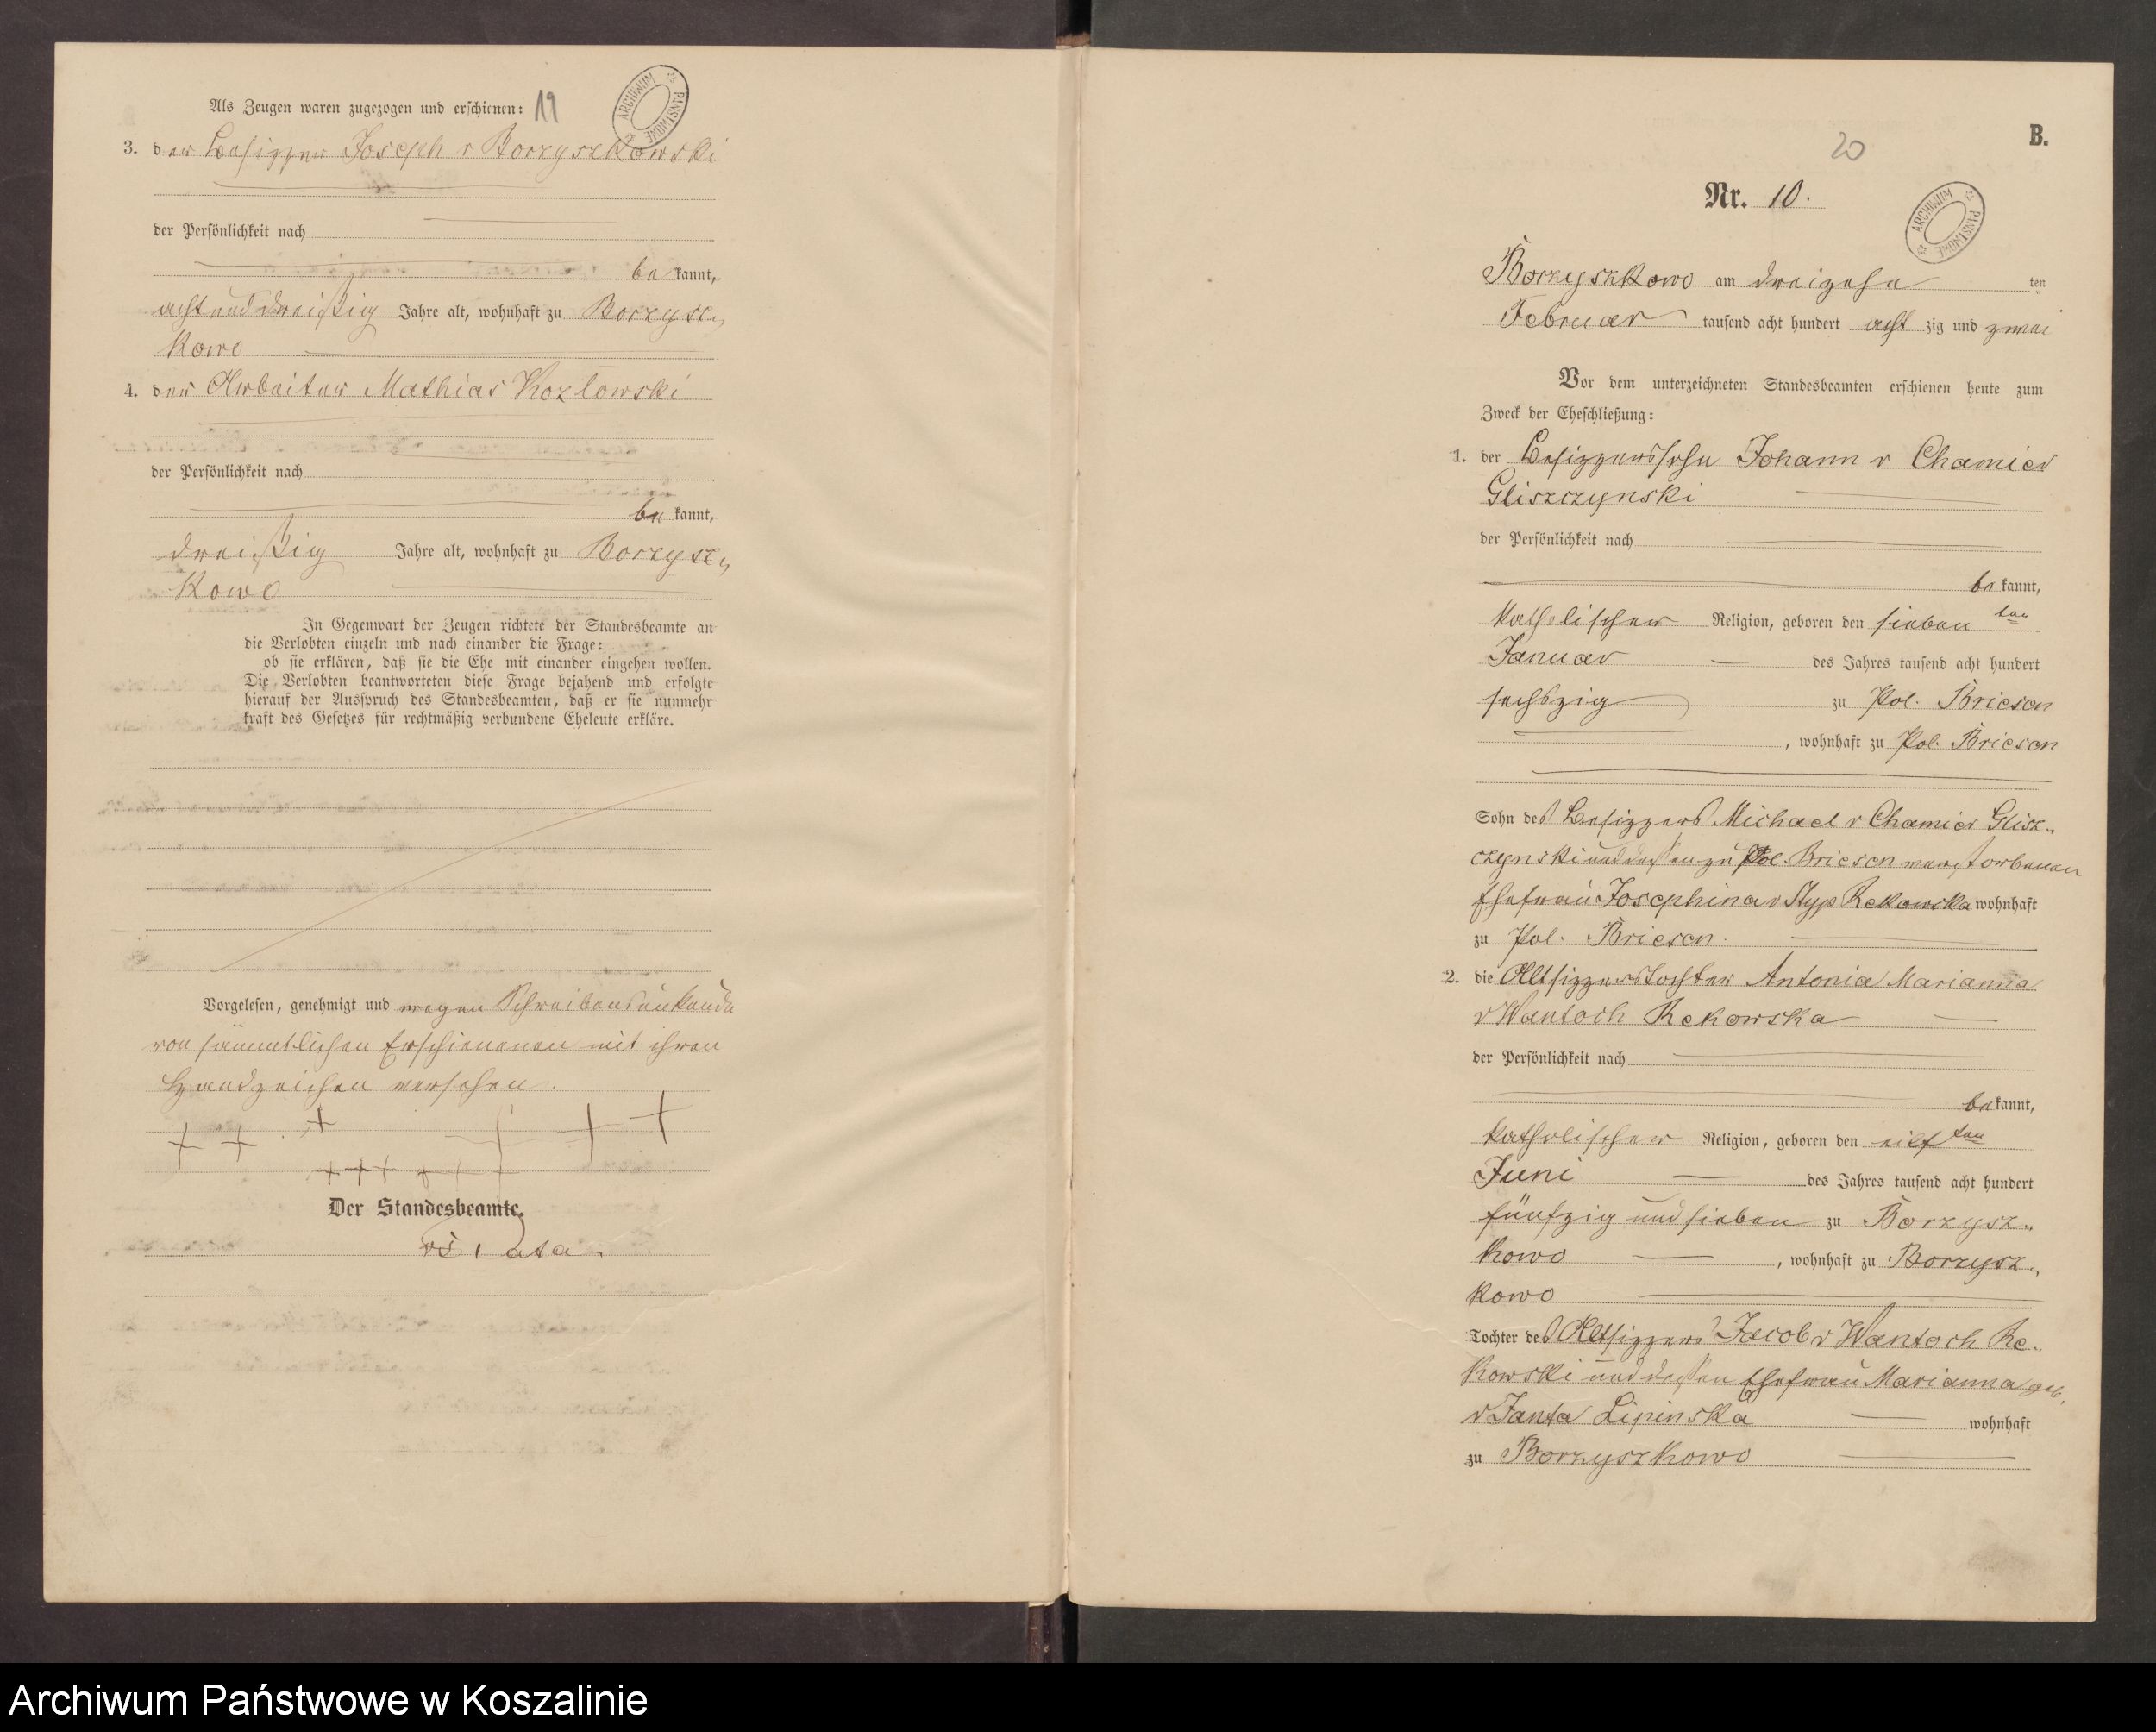 Als Zeugen waren zugezogen und erschienen: 19
ARCHIWUM PAŃSTWOWE
3. der Besitzer Joseph v Borzyszkowski
der Persönlichkeit nach
be kannt,
acht und dreißig Jahre alt, wohnhaft zu Borzysz„
kowo
4. der Arbeiter Mathias Kozlowski
der Persönlichkeit nach
be kannt,
dreißig Jahre alt, wohnhaft zu Borzysz„
kowo
In Gegenwart der Zeugen richtete der Standesbeamte an
die Verlobten einzeln und nach einander die Frage:
ob sie erklären, daß sie die Ehe mit einander eingehen wollen.
Die Verlobten beantworteten diese Frage bejahend und erfolgte
hierauf der Ausspruch des Standesbeamten, daß er sie nunmehr
kraft des Gesetzes für rechtmäßig verbundene Eheleute erkläre.
Vorgelesen, genehmigt und wegen Schreibensunkunde
von sämmtlichen Erschienenen mit ihren
Handzeichen versehen.
+ + + + + +
+++ + + +
Der Standesbeamte.
B.
20
Nr. 10.
ARCHIWUM PAŃSTWOWE
Borzyszkowo am dreizehn ten
Februar tausend acht hundert acht zig und zwei
Vor dem unterzeichneten Standesbeamten erschienen heute zum
Zweck der Eheschließung:
1. der Besitzerssohn Johann v Chamier
Gliszczynski
der Persönlichkeit nach
be kannt,
katholischer Religion, geboren den sieben ten
Januar des Jahres tausend acht hundert
sechszig zu Pol. Briesen
, wohnhaft zu Pol. Briesen
Sohn des Besitzers Michael v Chamier Glisz„
czynski und dessen zu Pol. Briesen verstorbenen
Ehefrau Josephina v Styp Rekowska wohnhaft
zu Pol. Briesen.
2. die Altsitzerstochter Antonia Marianna
v Wantoch Rekowska
der Persönlichkeit nach
be kannt,
katholischer Religion, geboren den eilf ten
Juni des Jahres tausend acht hundert
fünfzig und sieben zu Borzysz„
kowo , wohnhaft zu Borzysz„
kowo
Tochter des Altsitzers Jacob v Wantoch Re„
kowski und dessen Ehefrau Marianna geb.
v Janta Lipinska wohnhaft
zu Borzyszkowo
Archiwum Państwowe w Koszalinie